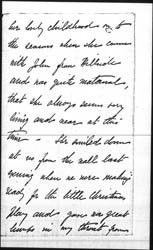 her early childhood &
the reasons when she came
with John from
and was quite natural,
that she always seems very
living and near at this
time — She smiled down
at us from the wall last
evening when we were making
ready for the little Christmas
play and gave me great
in my throat from